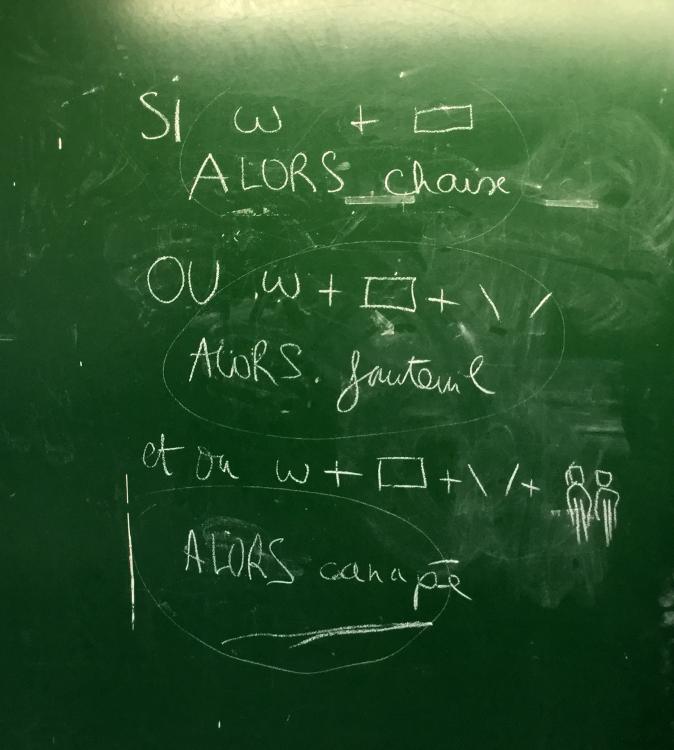 SI ω + ▭
ALORS chaise
OU ω + ▭ + \ /
ALORS. fauteuil
et ou ω + ▭ + \ / +
ALORS canapé